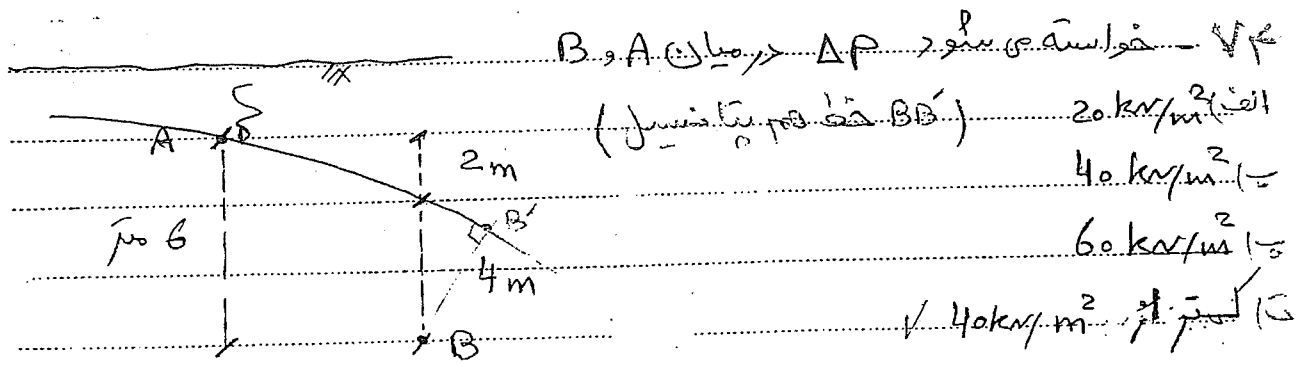 ۷۴ - خواسته می شود ΔP در میان A و B
(BB′ خط هم پتانسیل)
الف) 20 kN/m²
ب) 40 kN/m²
پ) 60 kN/m²
ت) کمتر از 40 kN/m² ✓
A
2m
6 متر
B′
4m
B